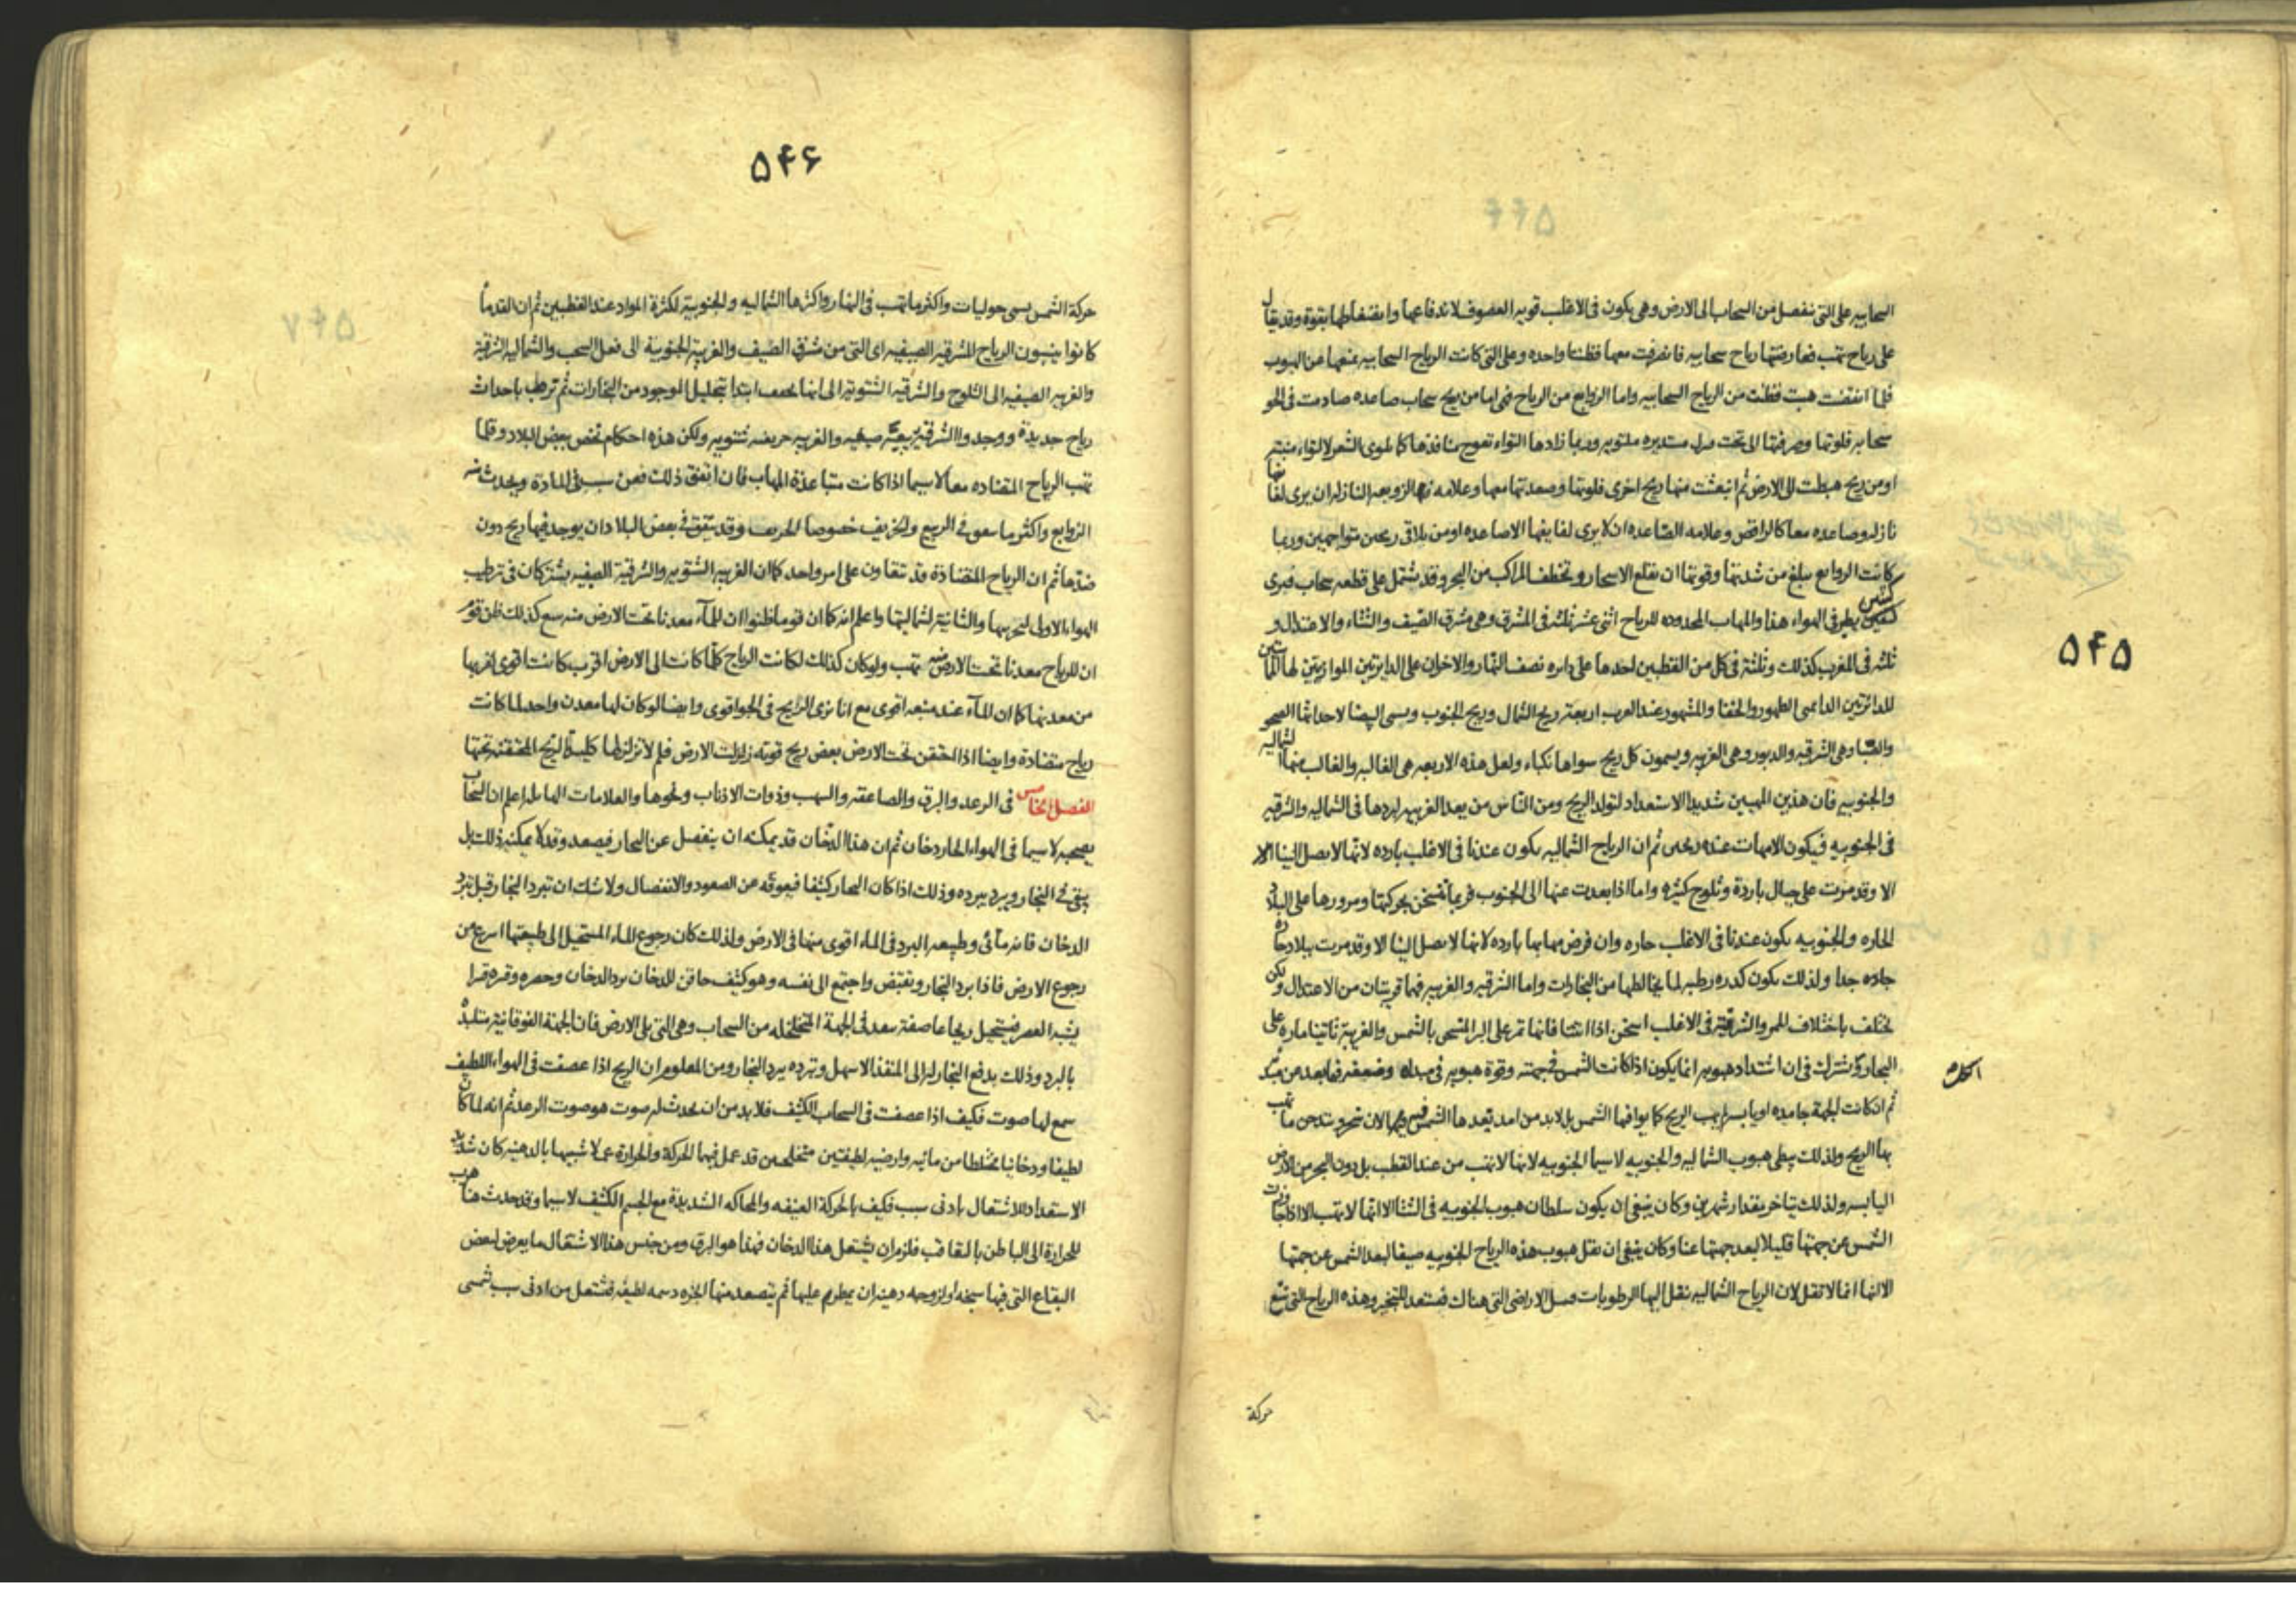 ۵۴۵
السحابيه على التى تنفصل من السحاب الى الارض وهى يكون فى الاغلب قويه العصوف لاندفاعها وانضغاطها بقوة وقد يقال
على رياح تهب فعارضتها رياح سحابيه فانصرفت معها فظنتا واحده وعلى التى كانت الرياح السحابيه تمنعها عن الهبوب
فلما هبت فظنت من الرياح السحابيه واما الزوابع من الرياح فهى اما من ريح سحاب صاعده صادمت فى الجو
سحابه فلوتها وصرفتها الى تحت مستديره ملتويه وربما زادها التواء تعوج منافذها كما يلوى الشعر لالتواء منبته
او من ريح هبطت الى الارض ثم انبعثت منها ريح اخرى فلوتها وصعدتها معها وعلامه الزوبعه النازله ان يرى لفائفها
نازله وصاعده معا كالراقص وعلامه الصاعده ان لا يرى لفايفها الا صاعده او من تلاقى ريحين متواجهين وربما
كانت الزوابع يبلغ من شدتها وقوتها ان يقلع الاشجار وتخطف المراكب من البحر وقد يشتمل على قطعه سحاب فيرى
كتنين يطير فى الهواء هذا والمهاب المحدوده للرياح اثنى عشر ثلثه فى المشرق وهى مشرق الصيف والشتاء والاعتدال و
ثلثه فى المغرب كذلك وثلثة فى كل من القطبين احدها على دايره نصف النهار والاخران على الدايرتين الموازيتين لها المماستين
للدائرتين الدائمى الظهور والخفا والمشهور عند العرب اربعة ريح الشمال وريح الجنوب ويسمى ايضا لاحداثها الصحو
والصبا وهى الشرقيه والدبور وهى الغربيه ويسمون كل ريح سواها نكباء ولعل هذه الاربعه هى الغالبه والغالب منها الشماليه
والجنوبيه فان هذين المهبين شديدا الاستعداد لتولد الريح ومن الناس من يعد الغربيه لبردها فى الشماليه والشرقيه
فى الجنوبيه فيكون الامهات عنده ريحين ثم ان الرياح الشماليه يكون عندنا فى الاغلب بارده لانها لا يصل الينا الا
الا وقد مرت على جبال باردة وثلوج كثيره واما اذا بعدت عنها الى الجنوب فربما تسخن بحركتها ومرورها على البلاد
الحاره والجنوبيه يكون عندنا فى الاغلب حاره وان فرض مهابها بارده لانها لا يصل الينا الا وقد مرت ببلاد حاره
حاده جدا ولذلك يكون كدره رطبه لما يخالطها من البخارات واما الشرقيه والغربيه فهما قريبتان من الاعتدال ولكن
يختلف باختلاف الممر والشرقية فى الاغلب اسخن اذا فانها تمر على البر المتسخن بالشمس والغربية تاتينا مارة على
البحار ويشترك فى ان اشتداد هبوبه انما يكون اذا كانت الشمس فى جهته وقوة هبوبه فى مبداه وضعفه فيما بعد من مبداه
ثم ان كانت الجهة جامده او يابسه لم يهب الريح كما يوافيها الشمس بل لا بد من امد يتعدها الشمس فيها لان
بها الريح ولذلك يبطى هبوب الشماليه والجنوبيه لا سيما الجنوبيه لانها لا تهب من عند القطب بل دون البحر من الارض
اليابسه ولذلك يتاخر بمقدار شهرين وكان ينبغى ان يكون سلطان هبوب الجنوبيه فى الشتا الا انها لا تهب الا اذا جاوزت
الشمس عن جهتها قليلا لبعد جهتها عنا وكان ينبغى ان يقل هبوب هذه الرياح الجنوبيه صيفا لبعد الشمس عن جهتها
الا انها انما لا تقل لان الرياح الشماليه ينقل اليها الرطوبات الاراضى التى هناك فستعد للتبخير وهذه الرياح التى تتبع
حركة
۵۴۶
حركة الشمس يسمى حوليات واكثر ما تهب فى النهار واكثرها الشماليه والجنوبية لكثرة المواد عند القطبين ثم ان القدماء
كانوا ينسبون الرياح المشرقيه الصيفيه اى التى من مشرق الصيف والغربية الجنوبية الى فعل السحب والشماليه الشرقية
والغربيه الصيفيه الى الثلوج والشرقيه الشتويه الى انها ابتدا بتحليل الموجود من البخارات ثم ترطب باحداث
رياح جديدة ووجدوا الشرقية صيفيه والغربيه شتويه ولكن هذه احكام تخص ببعض البلاد وقلما
تهب الرياح المتضاده معا لا سيما اذا كانت متباعدة المهاب فان اتفق ذلك فمن سبب فى المادة ويحدث منه
الزوابع واكثر ما فى الربيع والخريف خصوصا الخريف وقد يتفق فى بعض البلاد ان يوجد فيها ريح دون
ضدها ثم ان الرياح المتضادة قد تتعاون على امر واحد كما ان الغربيه الشتويه والشرقية الصيفيه يشتركان فى ترطيب
الهواء الاولى والثانية لشماليتها واعلم انه كما ان قوما ظنوا ان للماء معدنا تحت الارض منه كذلك ظن قوم
ان للرياح معدنا تحت الارض منه تهب ولو كان كذلك لكانت الرياح كلما كانت الى الارض اقرب كانت اقوى لقربها
من معدنها كما ان الماء عند منبعه اقوى مع انا نرى الرايح فى الجو اقوى وايضا لو كان لها معدن واحد لما كانت
رياح متضادة وايضا اذا احتقن تحت الارض بعض ريح قويه زلزلت الارض فلم لا تزلزلها كلية الريح المحتقنه تحتها
الفصل الخامس فى الرعد والبرق والصاعقه والشهب وذوات الاذناب ونحوها والعلامات الهايله اعلم ان السحاب
يصحبه لا سيما فى الهواء الحار دخان ثم ان هذا الدخان قد يمكنه ان ينفصل عن البخار فيصعد وقد لا يمكنه ذلك بل
يبقى فى البخار ويبرد ببرده وذلك اذا كان البخار كثيفا فيعوقه عن الصعود والانفصال ولا شك ان تبرد البخار قبل تبرد
الدخان فانه مائى وطبيعه البرد فى الماء اقوى منها فى الارض ولذلك كان رجوع الماء المستحيل الى طبيعتها اسرع من
رجوع الارض فاذا برد البخار وتقبض واجتمع الى نفسه وهو كثيف حاقن للدخان برد الدخان وحصره وقسره قسرا
يشبه العصر فيستحيل ريحا عاصفة فى الجهة المتخلخله من السحاب وهى التى تلى الارض فان الجهة الفوقانية متلبدة
بالبرد وذلك بدفع البخار له الى المنفذ الاسهل وتبرده ببرد البخار ومن المعلوم ان الريح اذا عصفت فى الهواء اللطيف
سمع لها صوت فكيف اذا عصفت فى السحاب الكثيف فلا بد من ان يحدث له صوت هو صوت الرعد ثم انه لما كان
لطيفا ودخانيا مختلطا من مائيه وارضيه لطيفتين متخلخلتين قد عمل فيها الحركة والحرارة عملا شبيها بالدهنيه كان شديد
الاستعداد للاشتعال بادنى سبب فكيف بالحركة العنيفه والمحاكه الشديدة مع الجسم الكثيف لا سيما وقد حدث هناك هرب
للحرارة الى الباطن بالتعاقب فلزم ان يشتعل هذا الدخان فهذا هو البرق ومن جنس هذا الاشتعال ما يعرض لبعض
البقاع التى فيها سبخه او لزوجه دهنيه ان يمطر عليها ثم يتصعد منها ابخره دسمه لطيفه فتشتعل من ادنى سبب شمسى